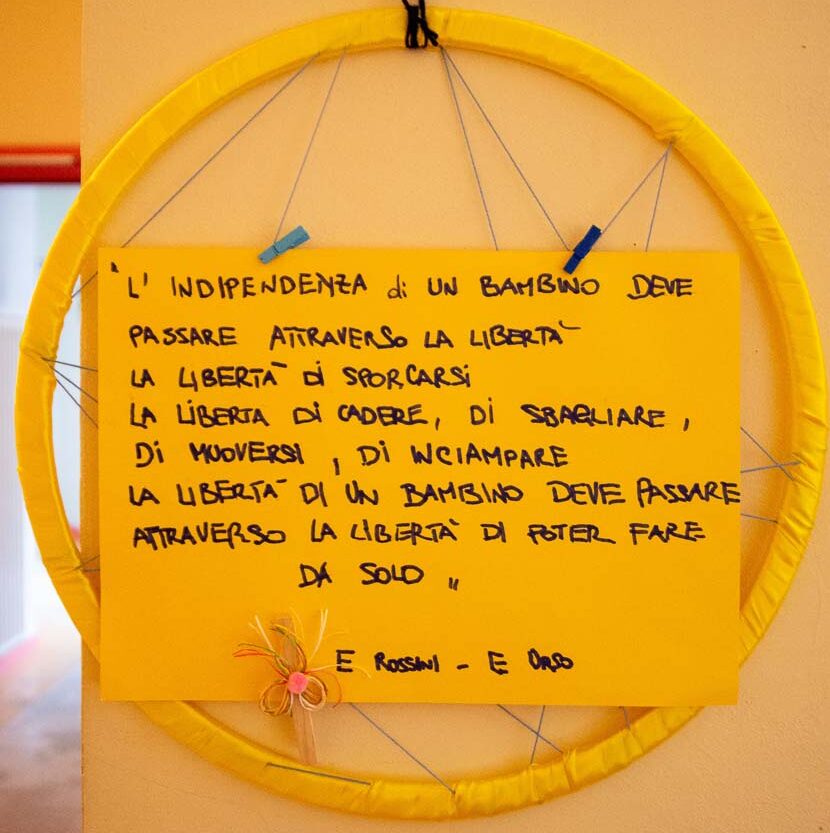 "L' INDIPENDENZA di UN BAMBINO DEVE
PASSARE ATTRAVERSO LA LIBERTÀ
LA LIBERTÀ Di SPORCARSi
LA LiBERTA Di CADERE, Di SBAGLIARE,
Di MUOVERSI, Di INCIAMPARE
LA LIBERTÀ DI UN BAMBINO DEVE PASSARE
ATTRAVERSO LA LIBERTÀ DI POTER FARE
DA SOLO "
E ROSSINI - E URSO